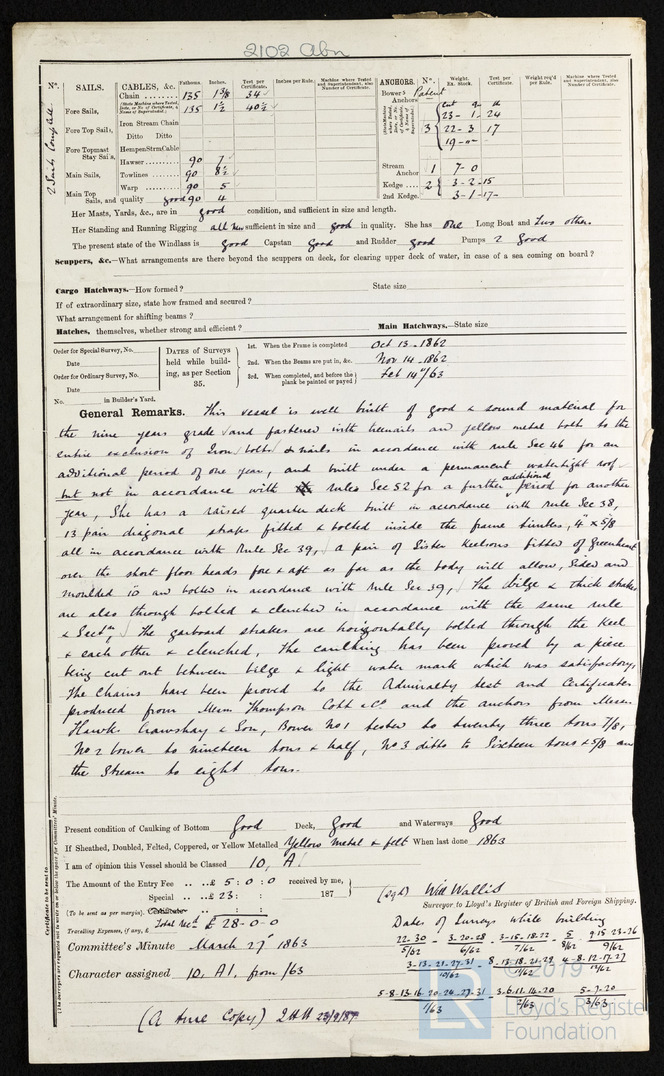 2102 Abn
Nº.
2 Suits Complete
SAILS.
Fore Sails,
Fore Top Sails,
Fore Topmast
Stay Sails,
Main Sails,
Main Top
Sails, and
CABLES, &c.
Fathoms.
Inches.
Test per Certificate.
Inches per Rule.
Machine where Tested and Superintendent, also Number of Certificate.
Chain ......... 135 1 3/8 34
(State Machine where Tested, Date, or No. of Certificate, & Name of Superintendent.) 135 1 1/2 40 1/2
Iron Stream Chain
Ditto Ditto
Hempen Strm Cable
Hawser ........ 90 7
Towlines ...... 90 8 1/2
Warp ......... 90 5
quality good 90 4
ANCHORS.
Nº.
Weight. Ex. Stock.
Test per Certificate.
Weight req'd per Rule.
Machine where Tested and Superintendent, also Number of Certificate.
Bower Anchors Patent
Cwt qr lb
3 23 - 1 - 24
22 - 3 17
19 - 0 -
Stream Anchor 1 7 - 0
Kedge ... 2 3 - 2 - 15
2nd Kedge. 3 - 1 - 17 -
Her Masts, Yards, &c., are in good condition, and sufficient in size and length.
Her Standing and Running Rigging all new sufficient in size and good in quality. She has One Long Boat and Two others
The present state of the Windlass is good Capstan good and Rudder good Pumps 2 good
Scuppers, &c.—What arrangements are there beyond the scuppers on deck, for clearing upper deck of water, in case of a sea coming on board?
Cargo Hatchways.—How formed? State size
If of extraordinary size, state how framed and secured?
What arrangement for shifting beams?
Hatches, themselves, whether strong and efficient? Main Hatchways.—State size
Order for Special Survey, No.
Date
Order for Ordinary Survey, No.
Date
No. in Builder's Yard.
DATES of Surveys held while building, as per Section 35.
1st. When the Frame is completed Oct 13 - 1862
2nd. When the Beams are put in, &c. Nov 14 - 1862
3rd. When completed, and before the plank be painted or payed Feb 14th/63
General Remarks. This vessel is well built of good & sound material for
the nine years grade and fastened with treenails and yellow metal bolts to the
entire exclusion of Iron bolts & nails in accordance with rule Sec 46 for an
additional period of one year, and built under a permanent watertight roof
but not in accordance with rules Sec 52 for a further additional period for another
year, She has a raised quarter deck built in accordance with rule Sec 38,
13 pair diagonal straps fitted & bolted inside the frame timbers, 4" x 5/8
all in accordance with Rule Sec 39, a pair of Sister Keelsons fitted of Greenheart
over the short floor heads fore & aft as far as the body will allow, Sided and
moulded 10 and bolted in accordance with rule Sec 39, The bilge & thick strakes
are also through bolted & clenched in accordance with the same rule
& Sectn, The garboard strakes are horizontally bolted through the Keel
& each other & clenched, The caulking has been proved by a piece
being cut out between bilge & light water mark which was satisfactory,
The Chains have been proved to the Admiralty test and Certificates
produced from Messrs Thompson Cobb & Co and the anchors from Messrs
Hawks Crawshay & Son, Bower No 1 tested to twenty three tons 7/8,
No 2 bower to nineteen tons & half, No 3 ditto to Sixteen tons & 5/8 and
the Stream to eight tons.
Present condition of Caulking of Bottom Good Deck, Good and Waterways Good
If Sheathed, Doubled, Felted, Coppered, or Yellow Metalled Yellow metal & felt When last done 1863
I am of opinion this Vessel should be Classed 10, A1
The Amount of the Entry Fee .. ..£ 5 : 0 : 0 received by me,
Special .. ..£ 23 : : 187
(To be sent as per margin). Certificate
Total Rect £ 28-0-0
Travelling Expenses, if any, £
Committee's Minute March 27th 1863
Character assigned 10, A1, from /63
(sgd) Will Wallis
Surveyor to Lloyd's Register of British and Foreign Shipping.
Dates of Surveys while building
22-30 5/62 3-20-28 6/62 3-15-18-22 7/62 5 8/62 9 15 23-26 9/62
3-13-21-27-31 10/62 8-13-18-21-28 11/62 4-8-12-17-27 12/62
5-8-13-16-20-24-27-31 1/63 3-6-11-14-20 2/63 5-7-20 3/63
(A true Copy)
Certificate to be sent to
(The Surveyors are requested not to write on or below the space for Committee's Minute.)
© 2019
LR
Lloyd's Register
Foundation